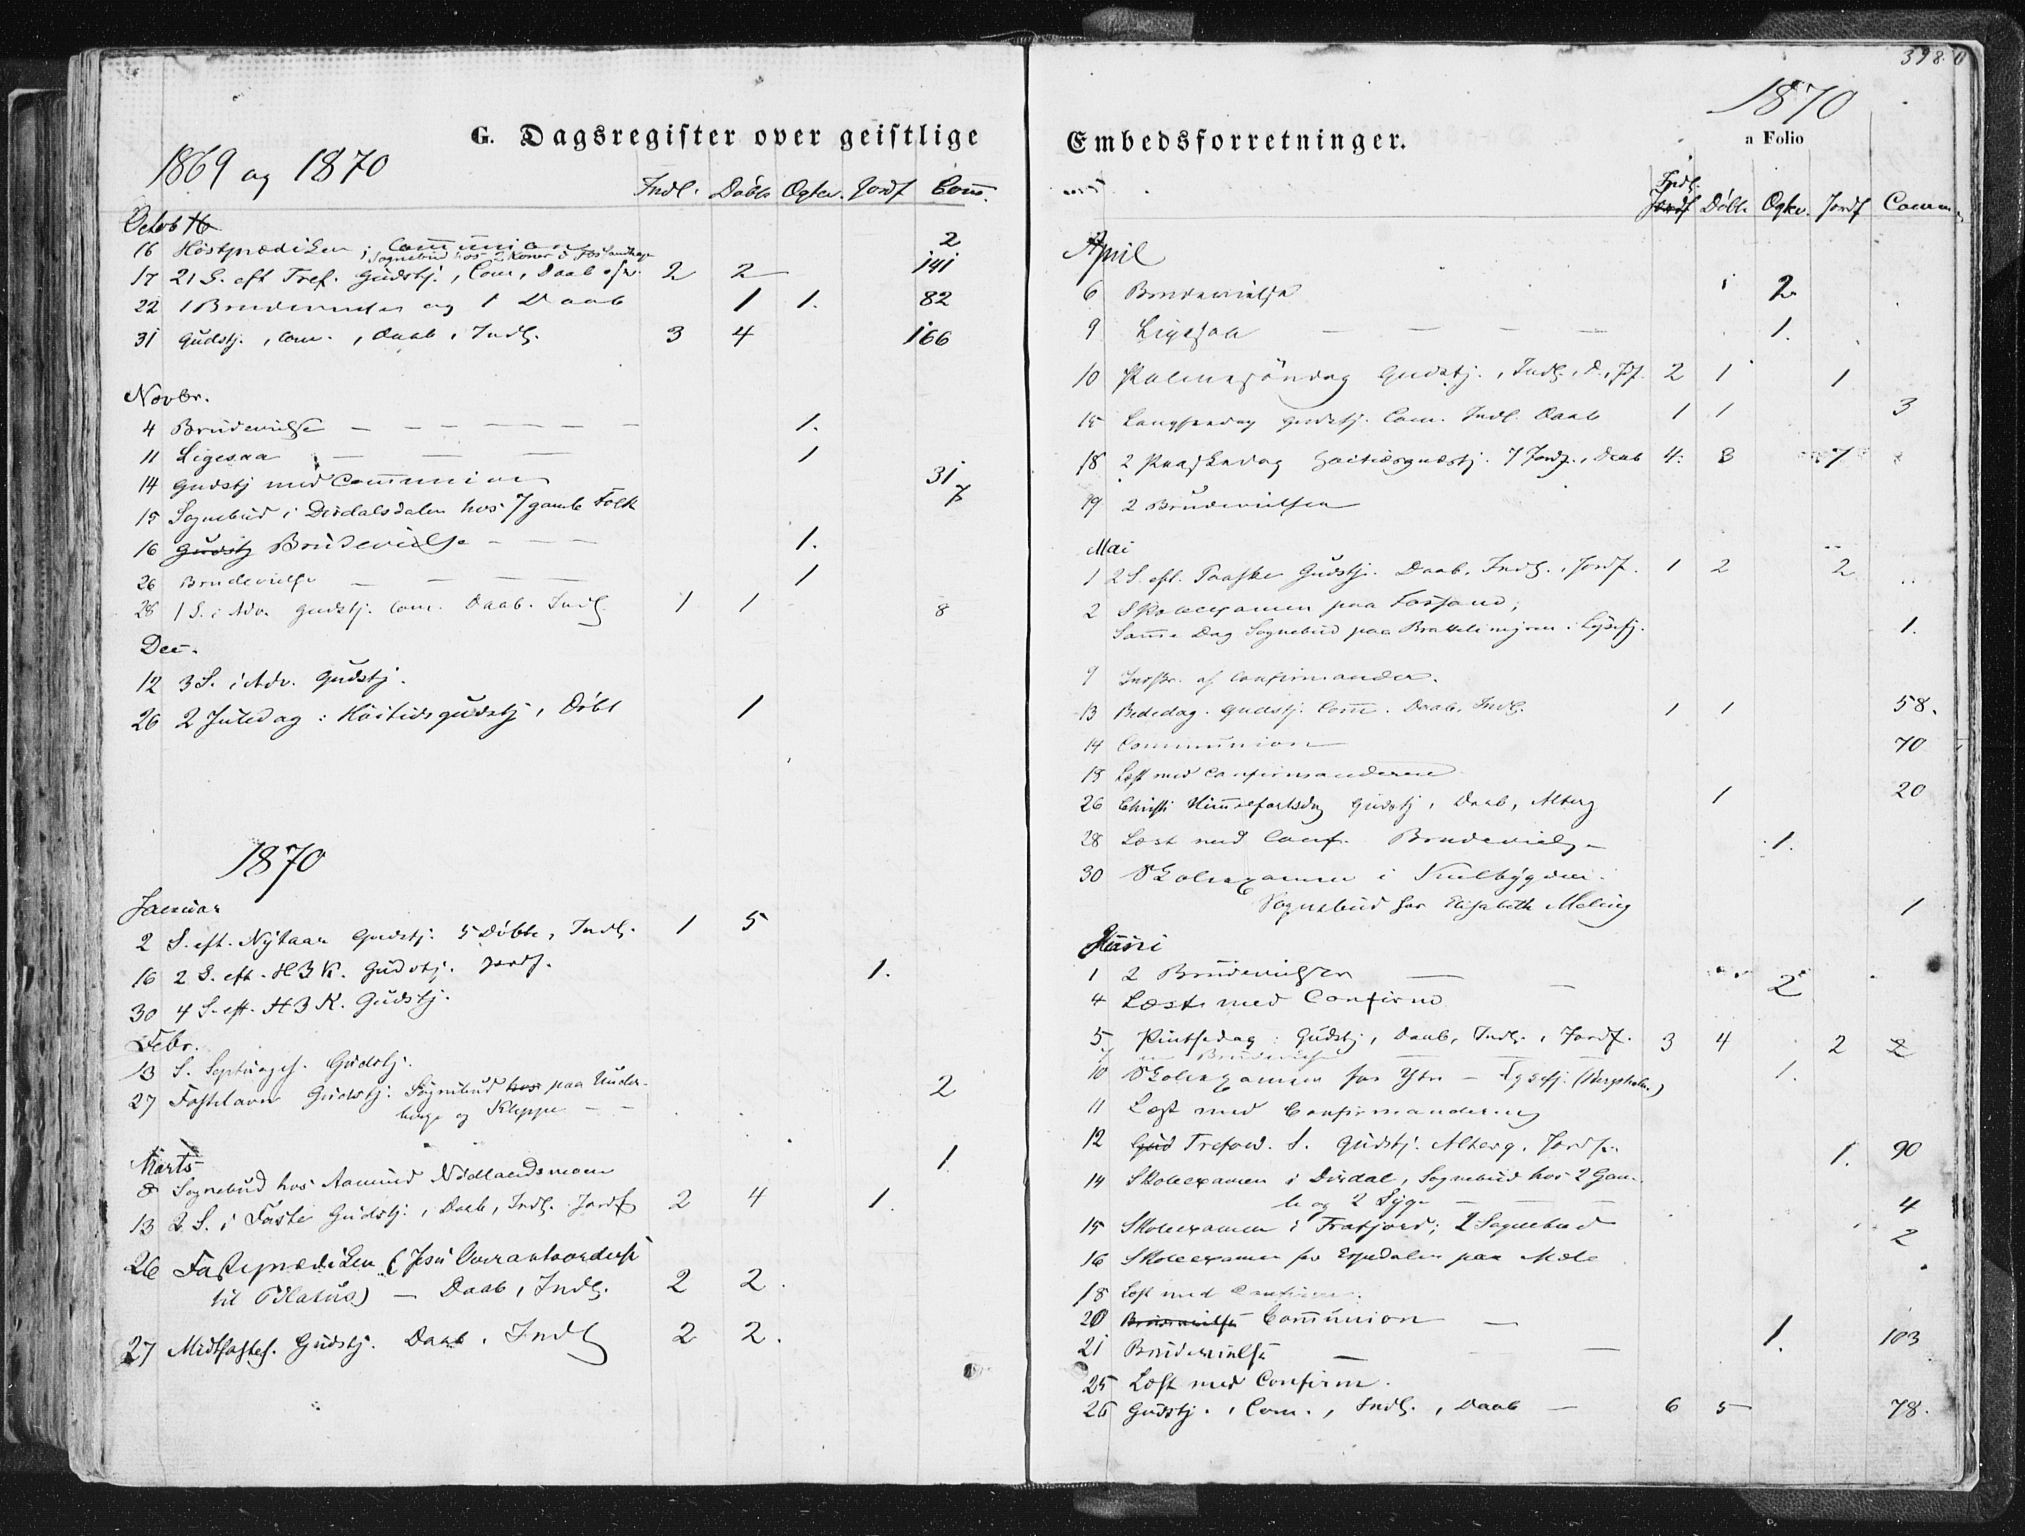 G. Dagsregister over geistlige
1869 og 1870
Indl. Døbte Ogtev. Jordf Com.
Octob
16 Høstprædiken ; Communion 2
Sognebud hos 2 Koner
17 21 S. eft Tref. Gudstj., Com, Daab 2 2 141
22 1 Brudevielse og 1 Daab 1 1. 82
31 Gudstj., Com., Daab, Indl. 3 4 166
Novbr.
4 Brudevielse — — — — — — 1.
11 Ligesaa — — — 1
14 Gudstj med Communion 31
15 Sognebud i Dirdalsdalen hos 7 gamle Folk 7
16 Gudstj Brudevielse - — — 1.
26 Brudevielse — — — 1
28 1 S. i Adv. Gudstj. Com. Daab. Indl. 1 1 8
Dec.
12 3 S. i Adv. Gudstj.
26 2 Juledag : Høitidsgudstj, Døbt 1
1870
Januar
2 S. eft. Nytaar Gudstj. 5 Døbte, Indl. 1 5
16 2 S. eft. H3K. Gudstj. Jordf. 1.
30 4 S. eft. H3K. Gudstj.
Febr.
13 S. Septuages. Gudstj.
27 Fastelavn Gudstj. Sognebud hos paa Under- 2
berge og Kleppe — —
Marts
8 Sognebud hos Aamund Nødlandsmoen 1.
13 2 S. i Faste Gudstj., Daab, Indl. Jordf 2 4 1.
26 Fasteprædiken (Jesu Overantvordelse
til Pilatus) — Daab, Indl. 2 2.
27 Midfastes. Gudstj. Daab, Indl 2 2.
398
1870
Embedsforretninger.
a Folio
Indl.
Jordf Døbte Ogtev. Jordf Comm.
April
6 Brudevielse 2
9 Ligesaa — — — — 1.
10 Palmesøndag Gudstj., Indl., D., Jf. 2 1 1
15 Langfredag Gudstj. Com. Indl. Daab 1 1 3
18 2 Paaskedag Høitidsgudstj. 7 Jordf., Daab 4 3 7
19 2 Brudevielsen
Mai
1 2 S. eft. Paaske Gudstj. Daab, Indl., Jordf. 1 2 2
2 Skoleexamen paa Fossand;
Samme Dag Sognebud paa Brattelimyren i Lysefj. 1.
9 Indskr. af Confirmander.
13 Bededag. Gudstj. Com. Daab, Indl. 1 1 58.
14 Communion 70
Læst med Confirmanderne
26 Christi Himmelfartsdag Gudstj, Daab, Alterg 1 20
28 Læst med Conf. Brudevielse 1.
30 Skoleexamen i
Sognebud for Elisabeth Meling 1
Juni
1 2 Brudevielser — — 2
4 Læst med Confirm
5 Pintsedag : Gudstj, Daab, Indl., Jordf. 3 4 2 2
7 en Brudevielse
10 Skoleexamen for Ytre — Lysefj. 1.
11 Læst med Confirmanderne
12 Gud Trefold. S. Gudstj. Alterg. Jordf. 1. 90
14 Skoleexamen i Dirdal, Sognebud hos 2 Gam-
le og 2 Syge — — — 4
15 Skoleexamen i Frafjord; 2 Sognebud 2
16 Skoleexamen for Espedalen paa Mæle
18 Læst med Confirm.
20 Brudevielse Communion — 103
21 Brudevielse — — 1.
25 Læst med Confirm.
26 Gudstj., Com., Indl., Daab — 6 5 78.